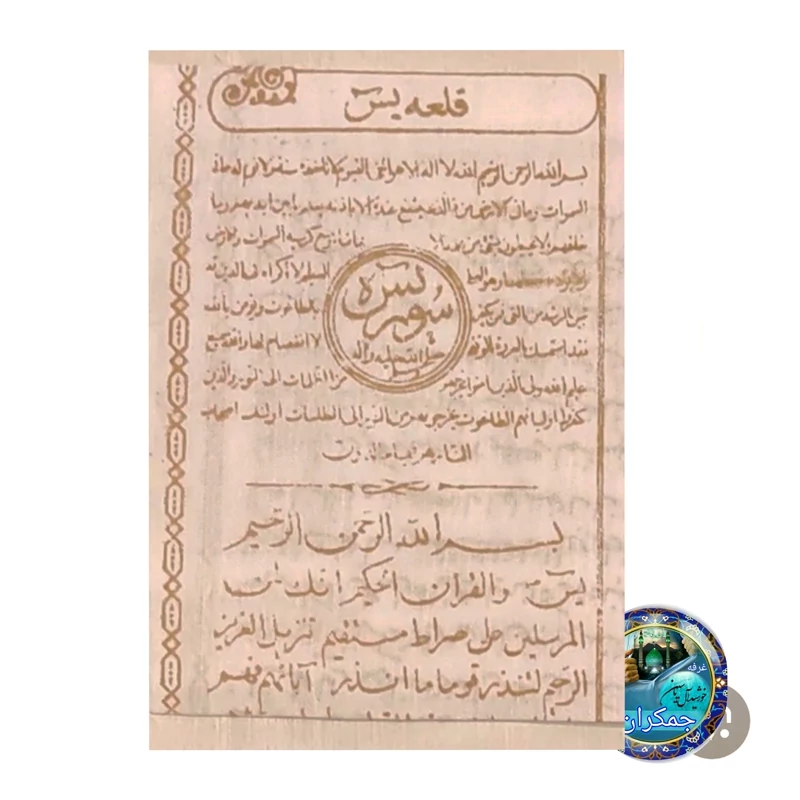 قلعه يس
بسم الله الرحمن الرحيم الله لا اله الا هو الحى القيوم لا تاخذه سنة و لا نوم له ما فى
السموات وما فى الارض من ذا الذى يشفع عنده الا باذنه يعلم ما بين ايديهم وما
خلفهم ولا يحيطون بشئ من علمه الا بما شاء وسع كرسيه السموات والارض
وهو العلى العظيم لا اكراه فى الدين قد
تبين الرشد من الغى فمن يكفر بالطاغوت ويؤمن بالله
فقد استمسك بالعروة الوثقى لا انفصام لها والله سميع
عليم الله ولى الذين امنوا يخرجهم من الظلمات الى النور والذين
كفروا اوليائهم الطاغوت يخرجونهم من النور الى الظلمات اولئك اصحاب
النار هم فيها خالدون
سوره يس
صلى الله عليه وآله
بسم الله الرحمن الرحيم
يس والقران الحكيم انك لمن
المرسلين على صراط مستقيم تنزيل العزيز
الرحيم لتنذر قوما ما انذر آبائهم فهم
غرفه
خورشيد آل ياسين
جمكران